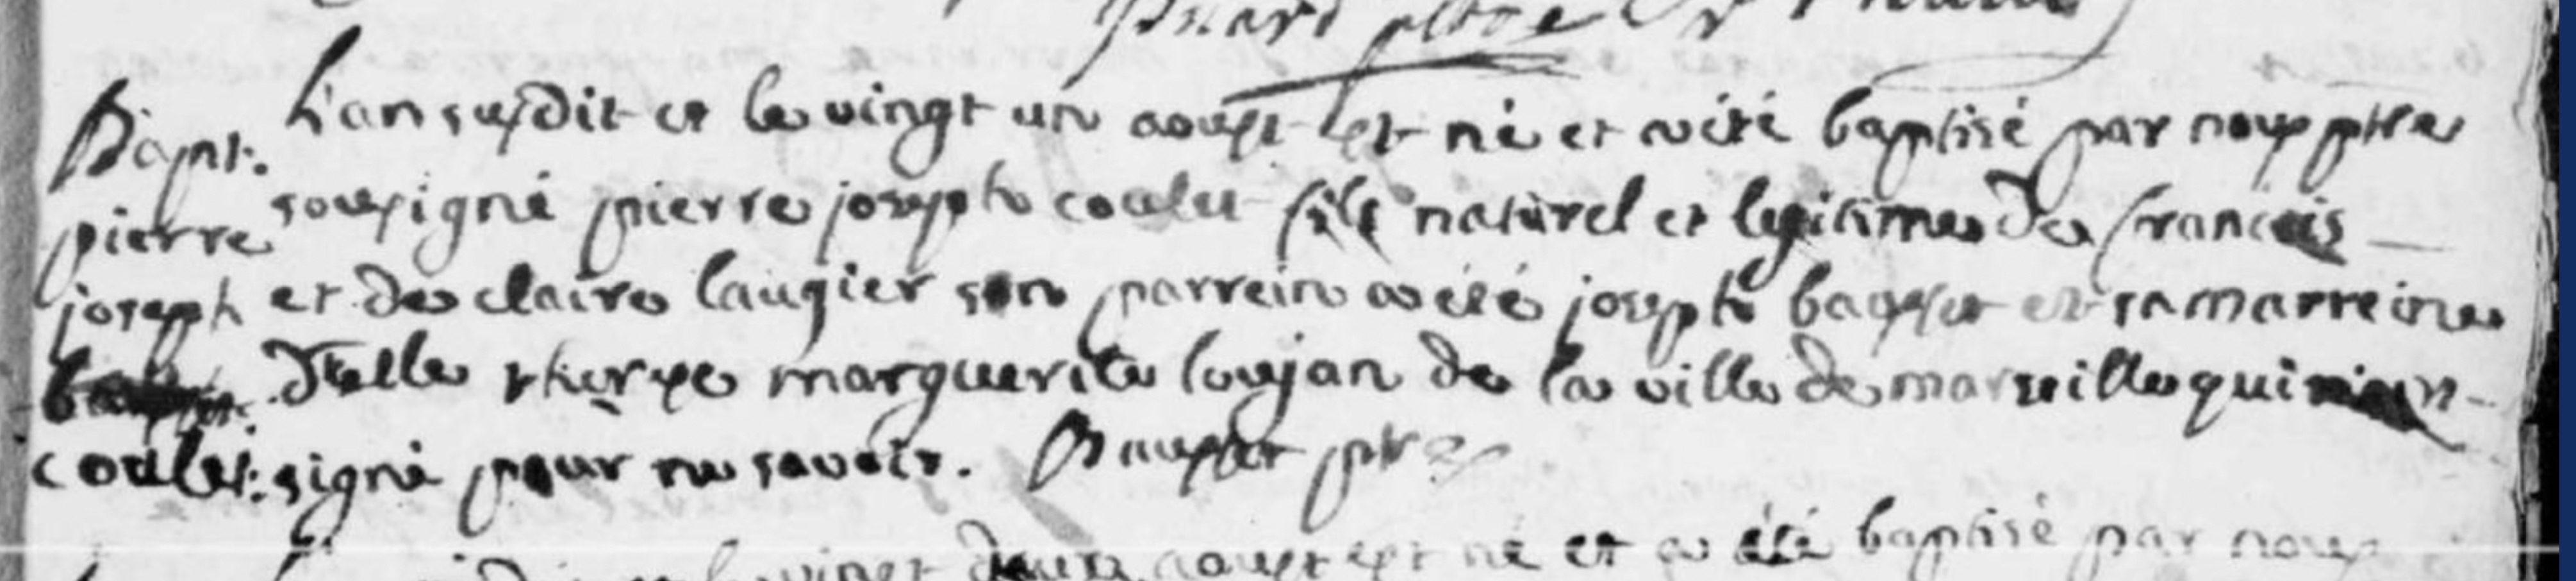 Bapt. L'an susdit et le vingt un aoust est né et a été baptisé par nous ptre
pierre soussigné pierre joseph coulet fils naturel et legitime de francois
joseph et de claire laugier son parrein a été joseph bausset et sa marreine
delle therese marguerite loujan de la ville de marseille qui n'ont
coulet. signé pour ne savoir. Bausset ptre
vingt deux aoust est né et a été baptisé par nous